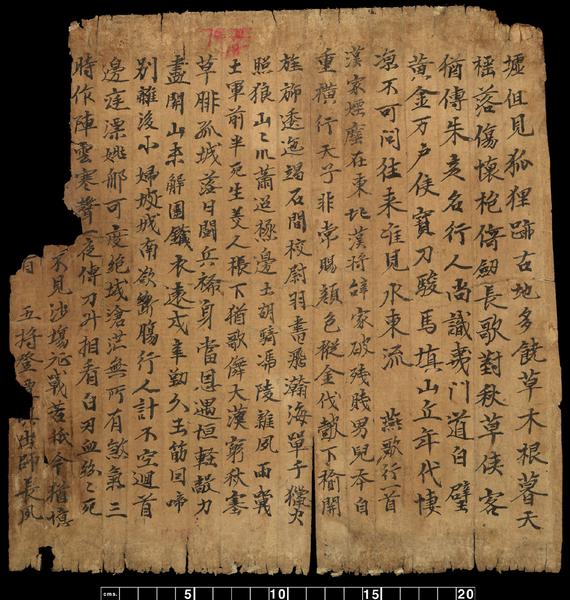 墟但見狐狸跡古地多饒草木根暮天
搖落傷懷抱倚劒長歌對秋草俠客
猶傳朱亥名行人尚識夷門道白璧
黃金万戶侯寶刀駿馬填山丘年代悽
涼不可問往來唯見水東流 燕歌行首
漢家煙塵在東北漢將辝家破殘賊男兒本自
重橫行天子非常賜顏色摐金伐皷下榆開
旌旆逶迤碣石間校尉羽書飛瀚海單于獵火
照狼山〻川蕭迢極邊土胡騎馮陵雜風雨戰
士軍前半死生美人帳下猶歌儛大漢窮秋塞
草腓孤城落日鬪兵稀身當恩遇恒輕敵力
盡開山未解圍鐵衣遠戍辛勤久玉筋回啼
別離後小婦城南欲斷腸行人計不空迴首
邊庭漂姚那可度絕域滄茫無所有煞氣三
時作陣雲寒聲一夜傳刀斗相看白刃血紛〻死
不見沙場征戰苦至今猶憶
五將登 出師長風